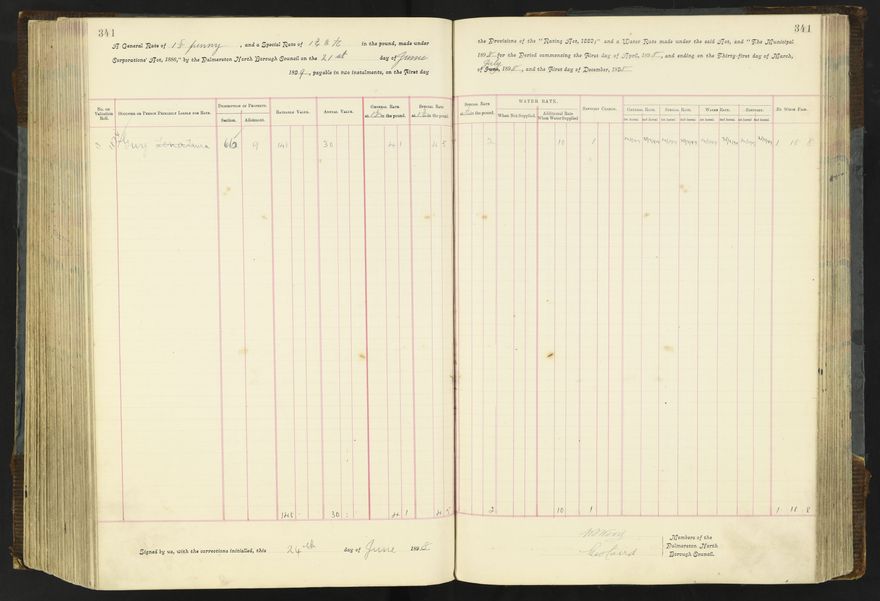 341
A General Rate of 1 & penny, and a Special Rate of in the pound, made under
Corporations' Act, 1886," by the Palmerston North Borough Council on the 21st day of June
189, payable in two instalments, on the First day
No. on Valuation Roll.
Occupier or Person Primarily Liable for Rate.
Description of Property.
Section.
Allotment.
Rateable Value.
Annual Value.
General Rate
at in the pound.
Special Rate
at in the pound.
66 9 141 30 4 1 4 5
141 30 4 1 4 5
Signed by us, with the corrections initialled, this 24th day of June 1898
341
the Provisions of the "Rating Act, 1882;" and a Water Rate made under the said Act, and "The Municipal
1898 for the Period commencing the First day of April, 1898, and ending on the Thirty-first day of March,
July
of June, 1898, and the First day of December, 1898
Special Rate
at in the pound.
WATER RATE.
When Not Supplied.
Additional Rate When Water Supplied
Sanitary Charge.
General Rate.
Special Rate.
Water Rate.
Sanitary.
1st Instal 2nd Instal 1st Instal 2nd Instal 1st Instal 2nd Instal 1st Instal 2nd Instal
By Whom Paid.
2 10 1 1 18 8
2 10 1 1 18 8
Members of the
Palmerston North
Borough Council.